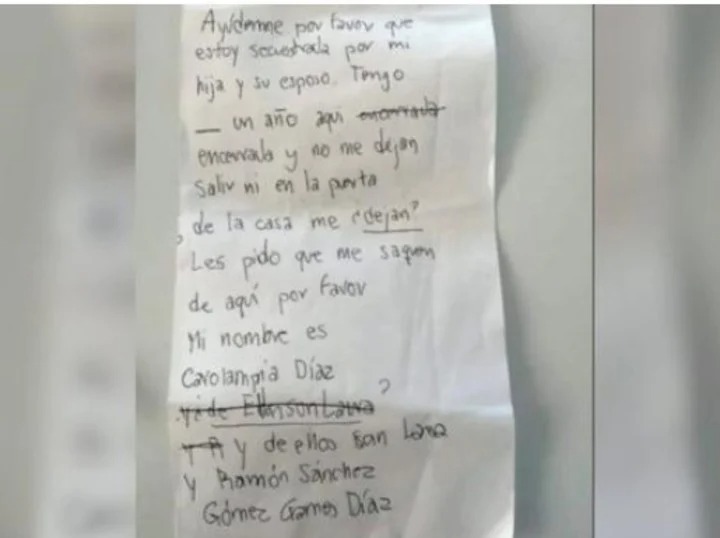 Ayúdenme por favor que
estoy secuestrada por mi
hija y su esposo. Tengo
_ un año aquí encerrada
encerrada y no me dejan
salir ni en la puerta
de la casa me ¿dejan?
Les pido que me saquen
de aquí por favor
Mi nombre es
Carolampia Díaz
?
y de ellos son Laura
y Ramón Sánchez
Gómez Díaz